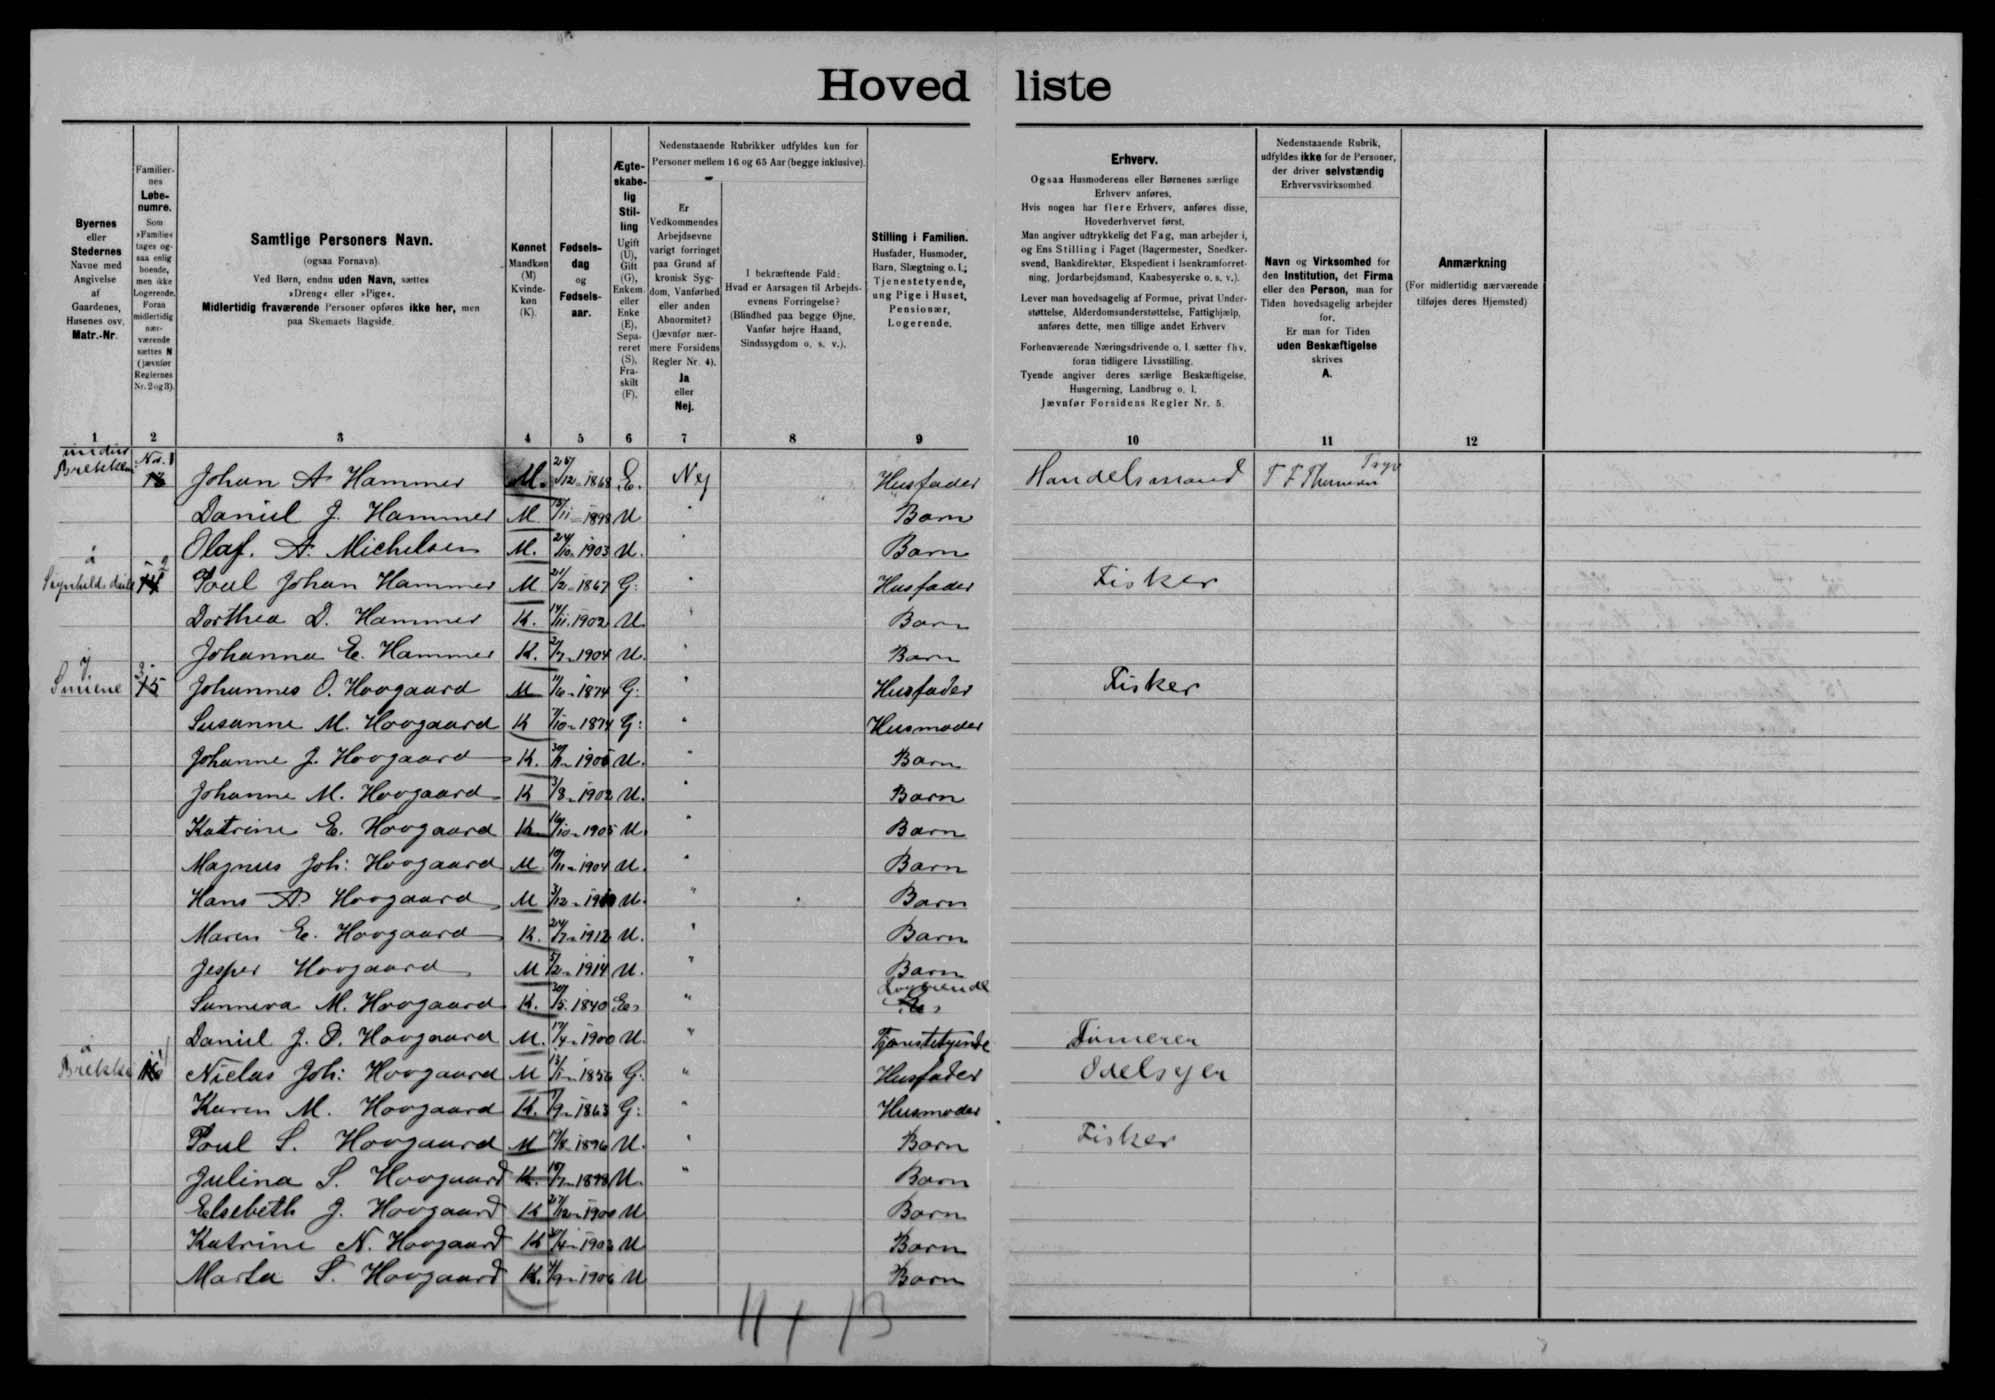 Hoved liste
Byernes
eller
Stedernes
Navne med
Angivelse
af
Gaardenes,
Husenes osv.
Matr.-Nr.
Familier-
nes
Løbe-
numre.
Som
»Familie«
tages og-
saa enlig
boende,
men ikke
Logerende.
Foran
midlertidig
nær-
værende
sættes N
(jævnfør
Reglernes
Nr. 2 og 3).
Samtlige Personers Navn.
(ogsaa Fornavn).
Ved Børn, endnu uden Navn, sættes
»Dreng« eller »Pige«.
Midlertidig fraværende Personer opføres ikke her, men
paa Skemaets Bagside.
Kønnet
Mandkøn
(M)
Kvinde-
køn
(K).
Fødsels-
dag
og
Fødsels-
aar.
Ægte-
skabe-
lig
Stil-
ling
Ugift
(U),
Gift
(G),
Enkem.
eller
Enke
(E),
Sepa-
reret
(S),
Fra-
skilt
(F).
Nedenstaaende Rubrikker udfyldes kun for
Personer mellem 16 og 65 Aar (begge inklusive).
Er
Vedkommendes
Arbejdsevne
varigt forringet
paa Grund af
kronisk Syg-
dom, Vanførhed
eller anden
Abnormitet?
(Jævnfør nær-
mere Forsidens
Regler Nr. 4).
Ja
eller
Nej.
I bekræftende Fald:
Hvad er Aarsagen til Arbejds-
evnens Forringelse?
(Blindhed paa begge Øjne,
Vanfør højre Haand,
Sindssygdom o. s. v.).
Stilling i Familien.
Husfader, Husmoder,
Barn, Slægtning o. l.;
Tjenestetyende,
ung Pige i Huset,
Pensionær,
Logerende.
Erhverv.
Ogsaa Husmoderens eller Børnenes særlige
Erhverv anføres.
Hvis nogen har flere Erhverv, anføres disse,
Hovederhvervet først.
Man angiver udtrykkelig det Fag, man arbejder i,
og Ens Stilling i Faget (Bagermester, Snedker-
svend, Bankdirektør, Ekspedient i Isenkramforret-
ning, Jordarbejdsmand, Kaabesyerske o. s. v.).
Lever man hovedsagelig af Formue, privat Under-
støttelse, Alderdomsunderstøttelse, Fattighjælp,
anføres dette, men tillige andet Erhverv
Forhenværende Næringsdrivende o. l. sætter fhv.
foran tidligere Livsstilling.
Tyende angiver deres særlige Beskæftigelse,
Husgerning, Landbrug o. l.
Jævnfør Forsidens Regler Nr. 5.
Nedenstaaende Rubrik,
udfyldes ikke for de Personer,
der driver selvstændig
Erhvervsvirksomhed
Navn og Virksomhed for
den Institution, det Firma
eller den Person, man for
Tiden hovedsagelig arbejder
for.
Er man for Tiden
uden Beskæftigelse
skrives
A.
Anmærkning
(For midlertidig nærværende
tilføjes deres Hjemsted)
1 2 3 4 5 6 7 8 9 10 11 12
Johan A Hammer M. 1868 E. Nej Husfader Handelsmand
Daniel J. Hammer M 1898 U " Barn
Olaf. A. Michelsen M. 1903 U. " Barn
Poul Johan Hammer M 1867 G: " Husfader Fisker
Dorthea D. Hammer K. 1902 U " Barn
Johanna E. Hammer K. 1904 U. " Barn
15 Johannes O. Hovgaard M 1874 G: " Husfader Fisker
Susanne M. Hovgaard K 1874 G: " Husmoder
Johanne J. Hovgaard K. U. " Barn
Johanne M. Hovgaard K 3/8 - 1902 U. " Barn
Katrine E. Hovgaard K 1905 U. " Barn
Magnus Joh: Hovgaard M 1904 U. " Barn
Hans A Hovgaard M 3/12 - U. " Barn
Maren E. Hovgaard K. 1912 U. " Barn
Jesper Hovgaard M 1914 U. " Barn
Sunneva M. Hovgaard K. 1840 "
Daniel J. P. Hovgaard M. 1900 U. " Tjenestetyende
Niclas Joh: Hovgaard M 1856 G: " Husfader Odelsejer
Karen M. Hovgaard K. 1863 G: " Husmoder
Poul S. Hovgaard M 1896 U. " Barn Fisker
Julina S. Hovgaard K. 1898 U. " Barn
Elsebeth J. Hovgaard K 1900 U Barn
Katrine N. Hovgaard K U Barn
Marta S. Hovgaard K. 1906 U Barn
11 + 13